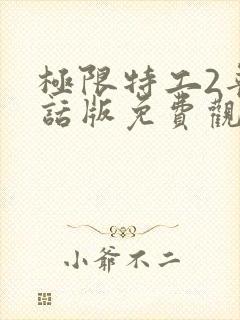 極限特工2
話版免費觀
小爺不二